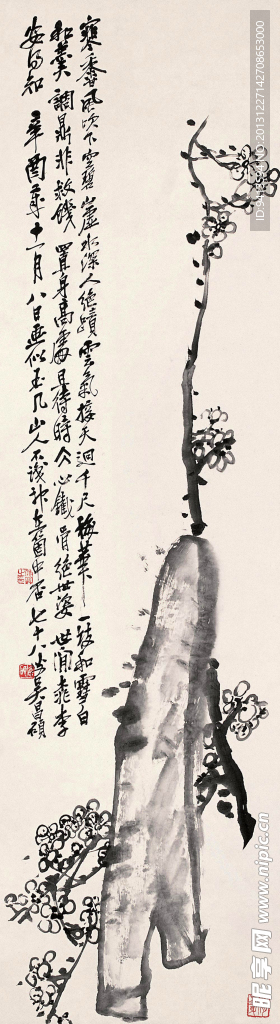 寒香風吹下東碧山虛水深人絕蹟雲氣接天迴千尺梅華一枝和雪白
和羹調鼎非救饑置身高處且待時冰心鐵骨絕世姿世間桃李
安得知 辛酉歲十一月八日畫似玉几山人不識 七十八叟吳昌碩
NO:20131227142708653000
昵享网 www.nipic.cn